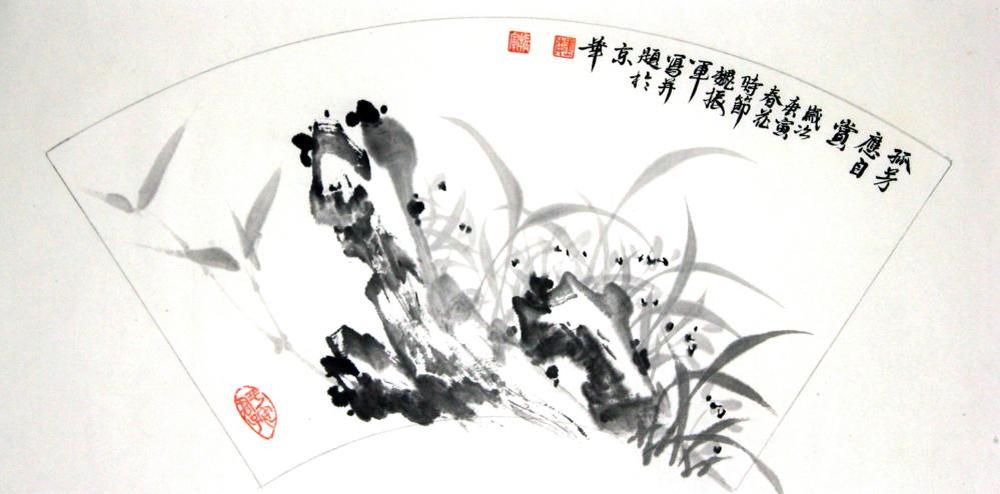 孤芳
應自
賞
歲次
庚寅
春花
時節
魏振
軍
寫并
題於
京
華